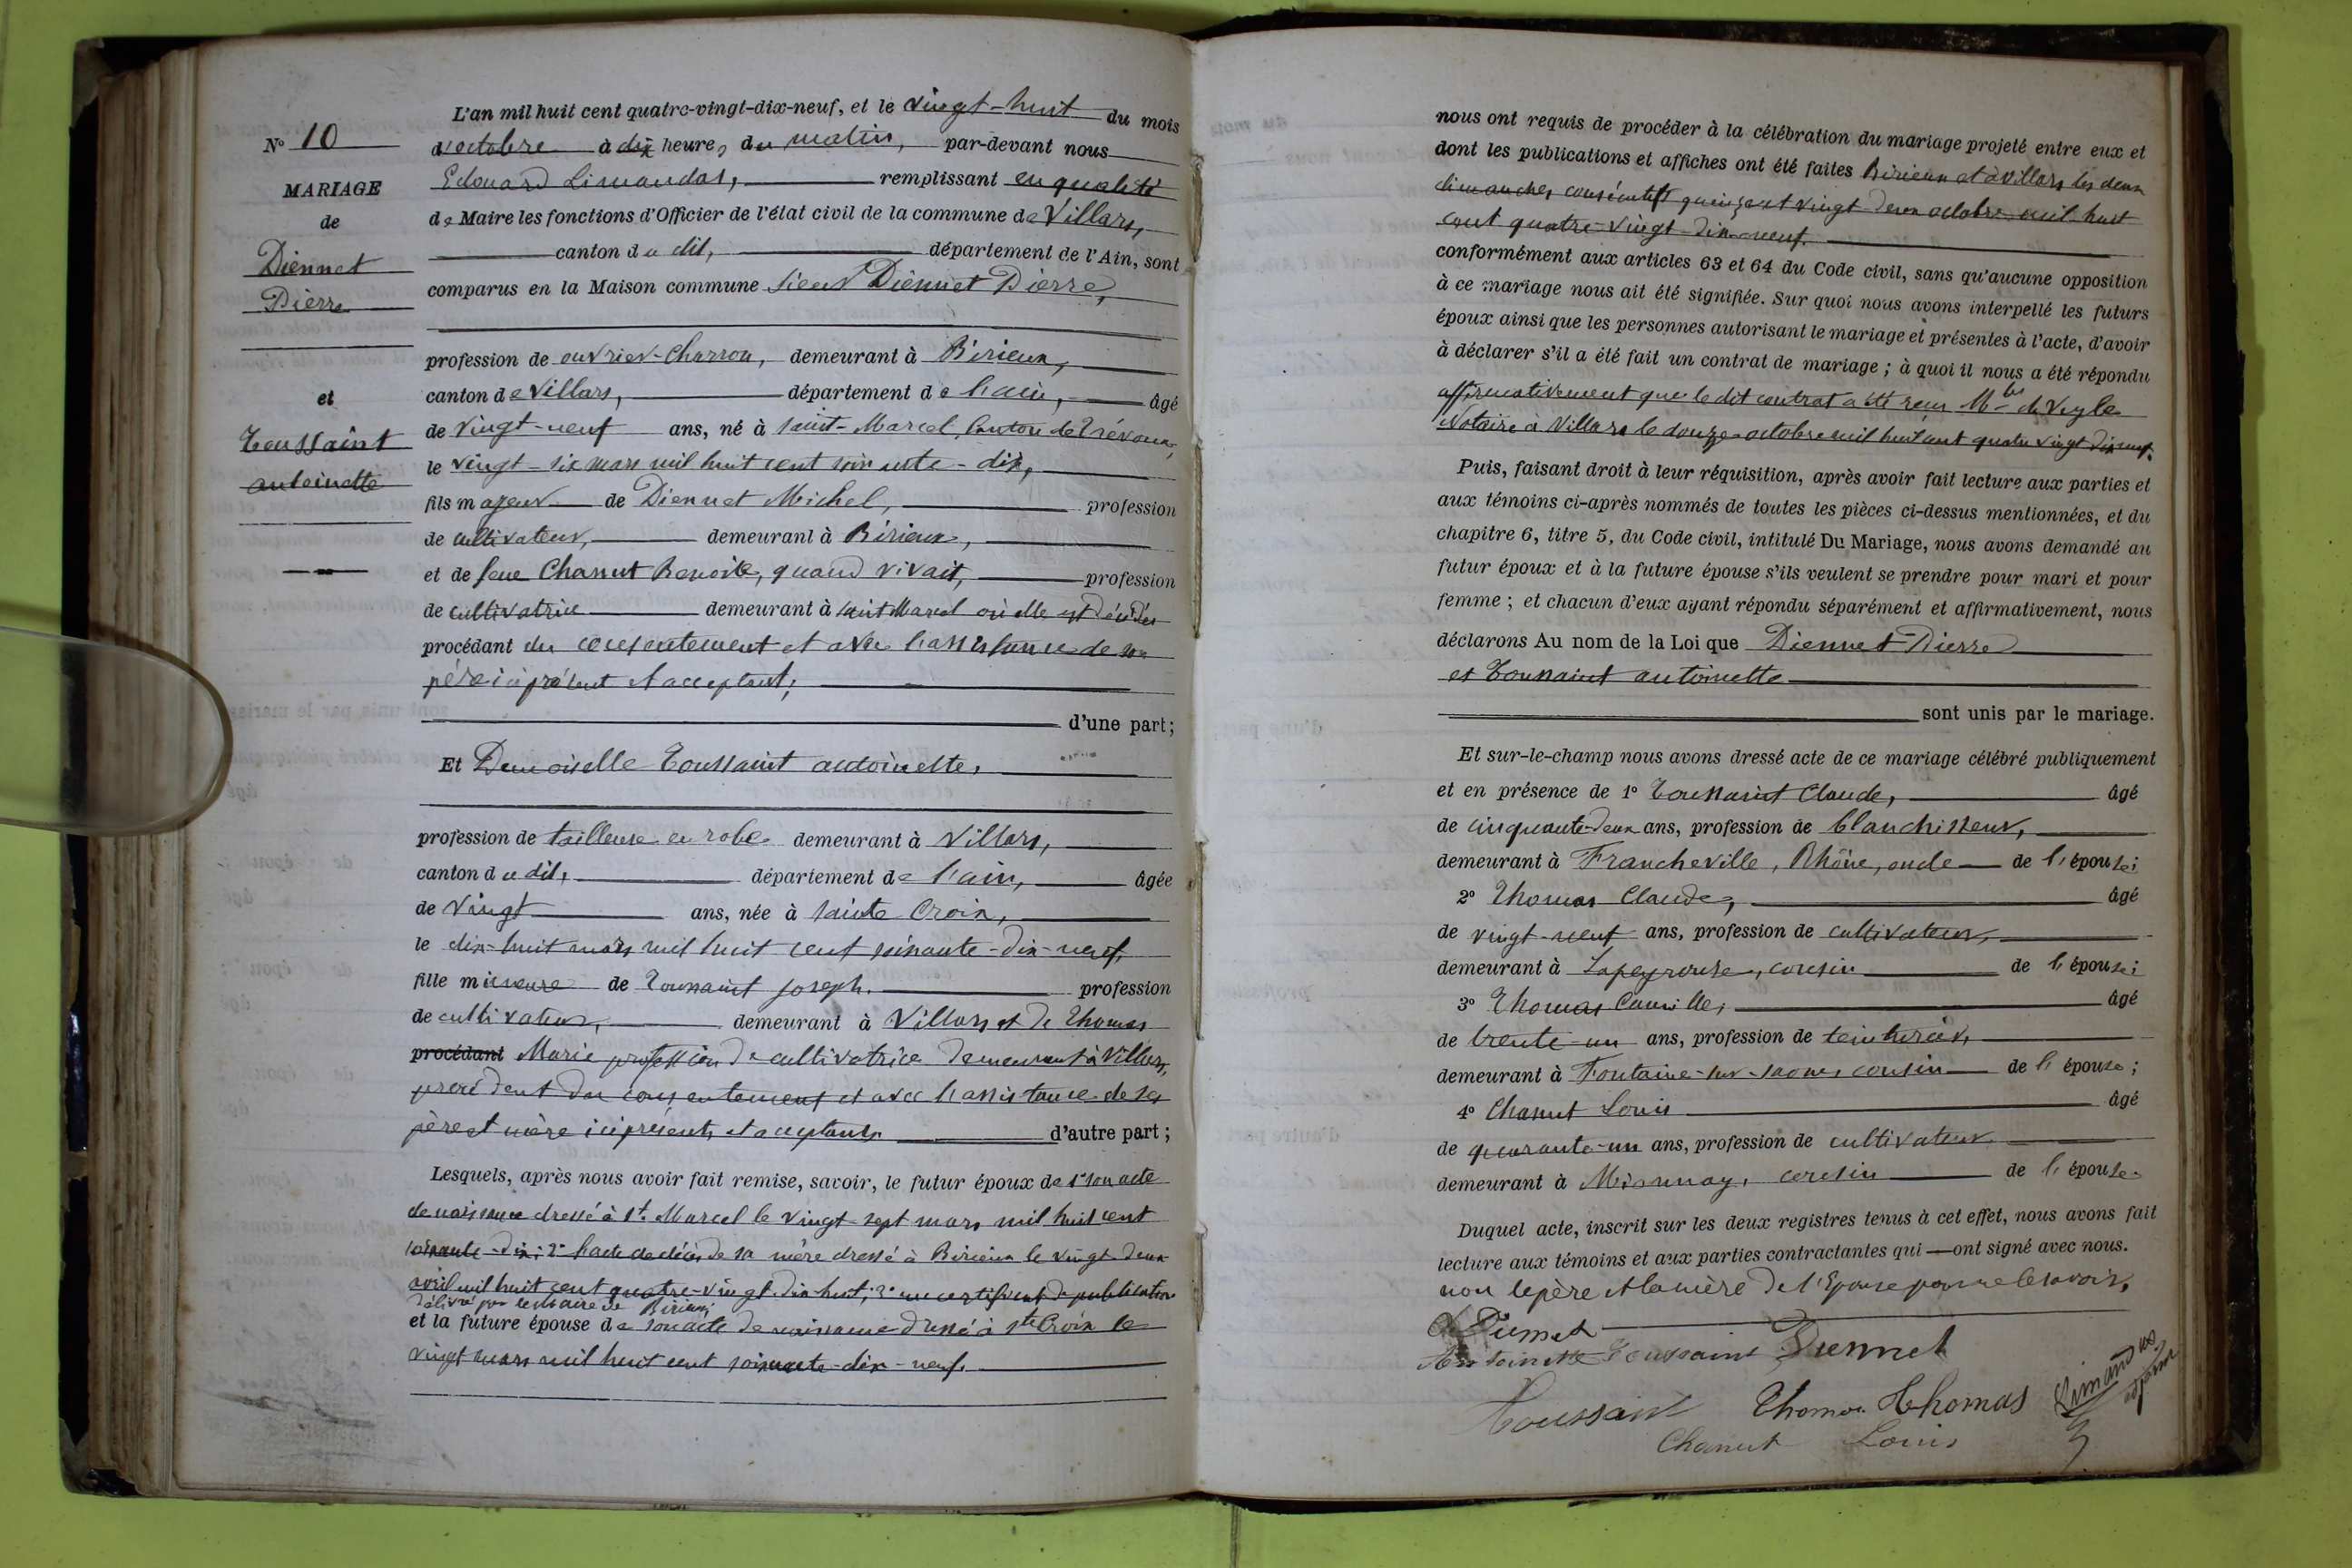 N° 10
MARIAGE
de
Diennet
Pierre
et
Toussaint
antoinette
L'an mil huit cent quatre-vingt-dix-neuf, et le vingt-huit du mois
d'octobre à dix heures du matin, par-devant nous
Edouard Limandas, remplissant en qualité
de Maire les fonctions d'Officier de l'état civil de la commune de Villars,
canton du dit, département de l'Ain, sont
comparus en la Maison commune sieur Diennet Pierre,
profession de ouvrier-charron, demeurant à Birieux,
canton de Villars, département de l'ain, âgé
de vingt-neuf ans, né à saint-Marcel, Canton de Trévoux,
le vingt-six mars mil huit cent soixante-dix,
fils majeur de Diennet Michel, profession
de cultivateur, demeurant à Birieux,
et de feue Chanut Benoite, quand vivait, profession
de cultivatrice demeurant à saint Marcel où elle est décédée
procédant du consentement et avec l'assistance de son
père ici présent et acceptant;
d'une part;
Et Demoiselle Toussaint antoinette,
profession de tailleuse en robe demeurant à Villars,
canton du dit, département de l'ain, âgée
de vingt ans, née à sainte Croix,
le dix-huit mars mil huit cent soixante-dix-neuf,
fille mineure de Toussaint Joseph. profession
de cultivateur, demeurant à Villars et de Thomas
procédant Marie profession de cultivatrice demeurant à Villars,
procédant du consentement et avec l'assistance de ses
père et mère ici présents et acceptants d'autre part;
Lesquels, après nous avoir fait remise, savoir, le futur époux de 1° son acte
de naissance dressé à St. Marcel le vingt-sept mars mil huit cent
soixante-dix; 2° l'acte de décès de sa mère dressé à Birieux le vingt deux
avril mil huit cent quatre-vingt-dix-huit; 3° un certificat de publication
délivré par le Maire de Birieux;
et la future épouse de son acte de naissance dressé à Ste Croix le
vingt mars mil huit cent soixante-dix-neuf.
nous ont requis de procéder à la célébration du mariage projeté entre eux et
dont les publications et affiches ont été faites Birieux et à Villars les deux
dimanches consécutifs quinze et vingt deux octobre mil huit
cent quatre-vingt-dix-neuf.
conformément aux articles 63 et 64 du Code civil, sans qu'aucune opposition
à ce mariage nous ait été signifiée. Sur quoi nous avons interpellé les futurs
époux ainsi que les personnes autorisant le mariage et présentes à l'acte, d'avoir
à déclarer s'il a été fait un contrat de mariage; à quoi il nous a été répondu
affirmativement que le dit contrat a été reçu Mtre de Veyle
Notaire à Villars le douze octobre mil huit cent quatre vingt dix neuf.
Puis, faisant droit à leur réquisition, après avoir fait lecture aux parties et
aux témoins ci-après nommés de toutes les pièces ci-dessus mentionnées, et du
chapitre 6, titre 5, du Code civil, intitulé Du Mariage, nous avons demandé au
futur époux et à la future épouse s'ils veulent se prendre pour mari et pour
femme; et chacun d'eux ayant répondu séparément et affirmativement, nous
déclarons Au nom de la Loi que Diennet Pierre
et Toussaint antoinette
sont unis par le mariage.
Et sur-le-champ nous avons dressé acte de ce mariage célébré publiquement
et en présence de 1° Toussaint Claude, âgé
de cinquante-deux ans, profession de blanchisseur,
demeurant à Francheville, Rhône, oncle de l'épouse;
2° Thomas Claude, âgé
de vingt-neuf ans, profession de cultivateur,
demeurant à Lapeyrouse, cousin de l'épouse;
3° Thomas Camille, âgé
de trente-un ans, profession de teinturier,
demeurant à Fontaine-sur-saone, cousin de l'épouse;
4° Chanut Louis âgé
de quarante-un ans, profession de cultivateur
demeurant à Mionnay, cousin de l'épouse.
Duquel acte, inscrit sur les deux registres tenus à cet effet, nous avons fait
lecture aux témoins et aux parties contractantes qui ont signé avec nous.
non le père et la mère de l'Epouse pour ne le savoir.
Antoinette Toussaint Diennet
Toussaint Thomas Thomas Limandas
Chanut Louis